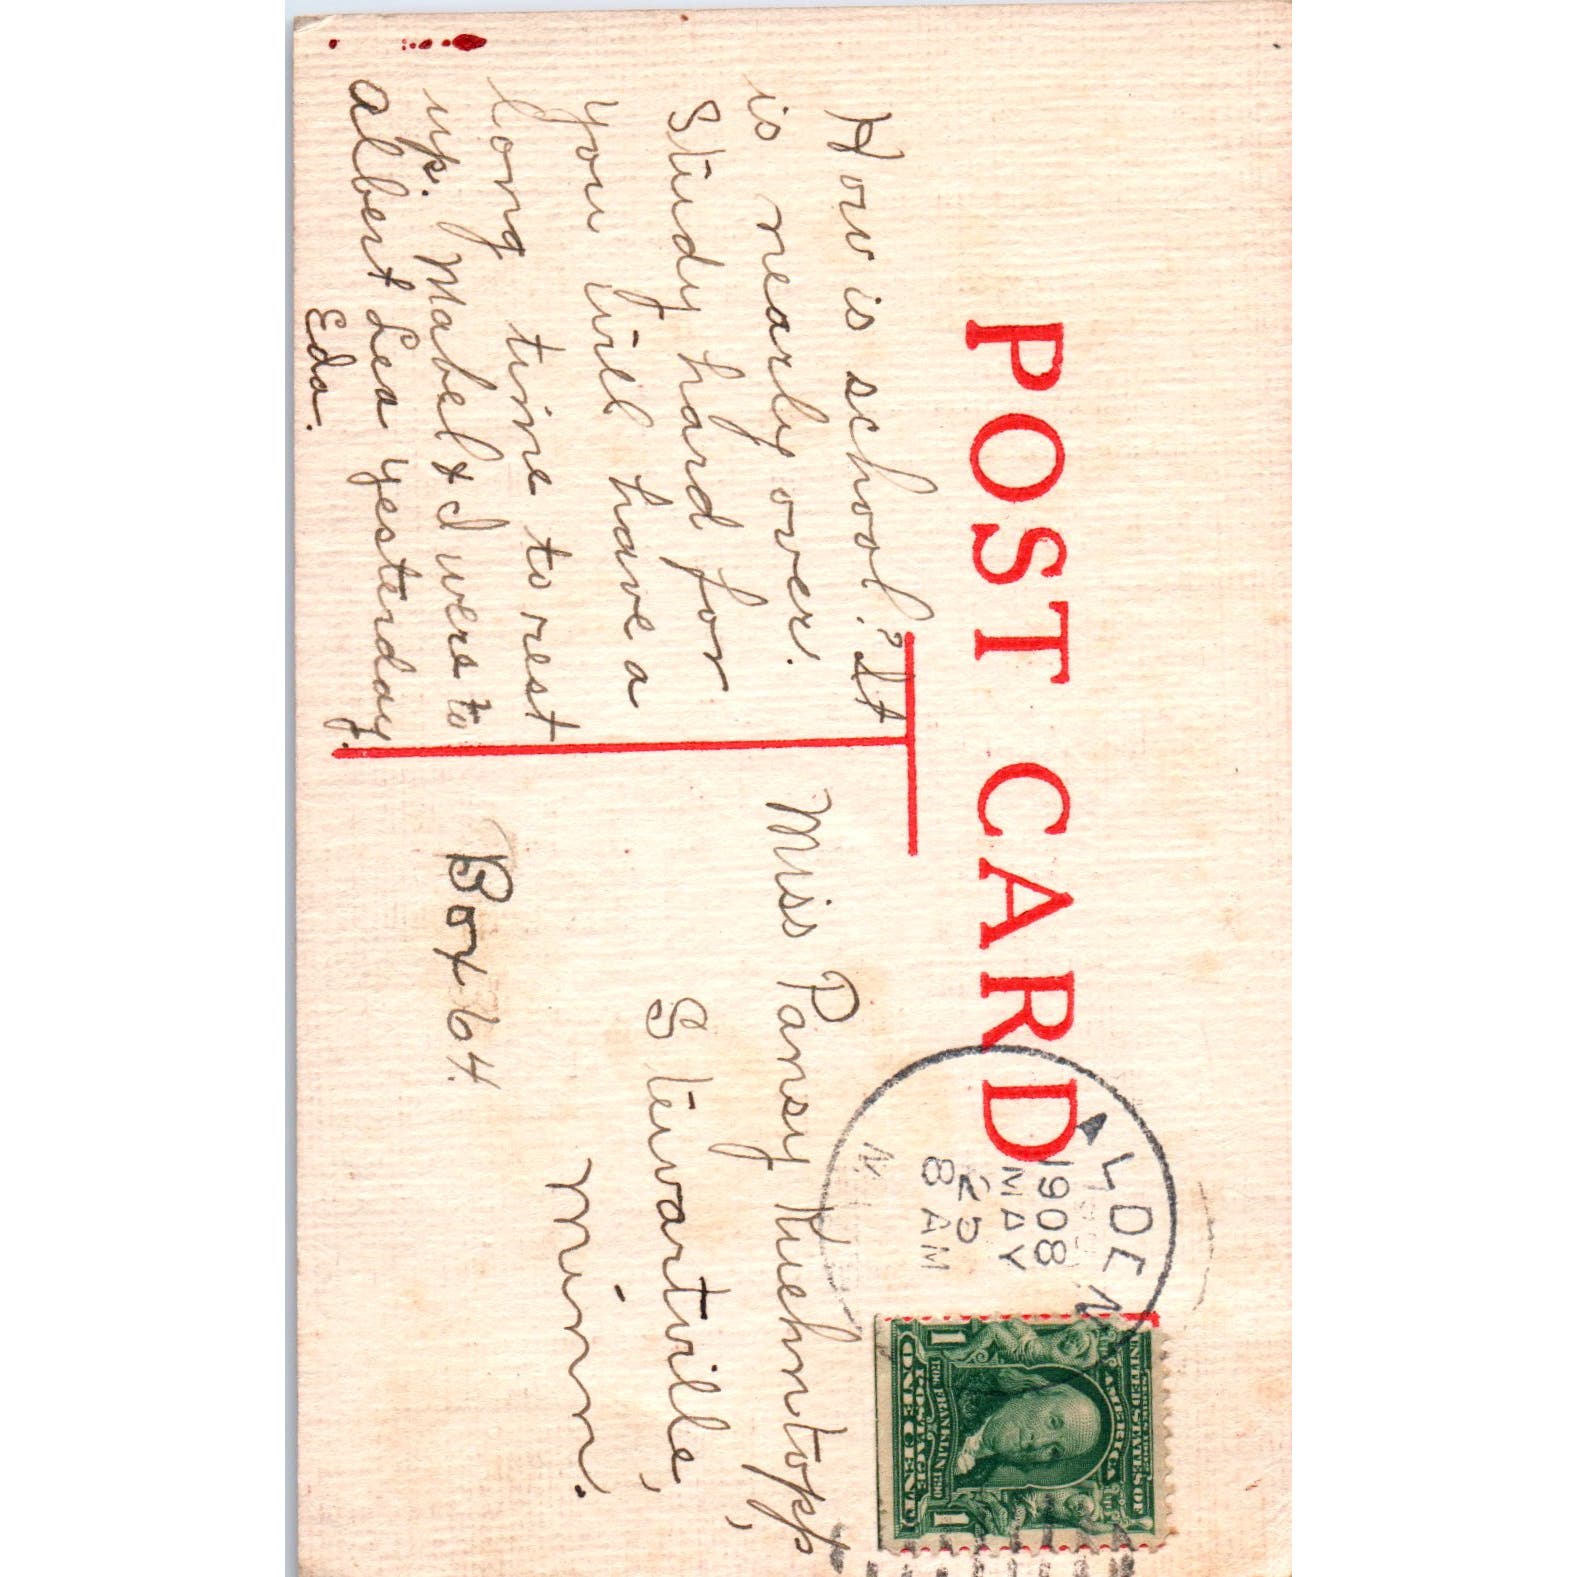 POST CARD
ALDEN
1908
MAY
25
8 AM
UNITED STATES OF
AMERICA
FRANKLIN
POSTAGE
1 ONE CENT 1
How is school? It
is nearly over.
Study hard for
you will have a
long time to rest
up. Mabel & I were to
Albert Lea yesterday.
Eda.
Miss Pansy Kuehntopp,
Stewartville,
Minn.
Box 64